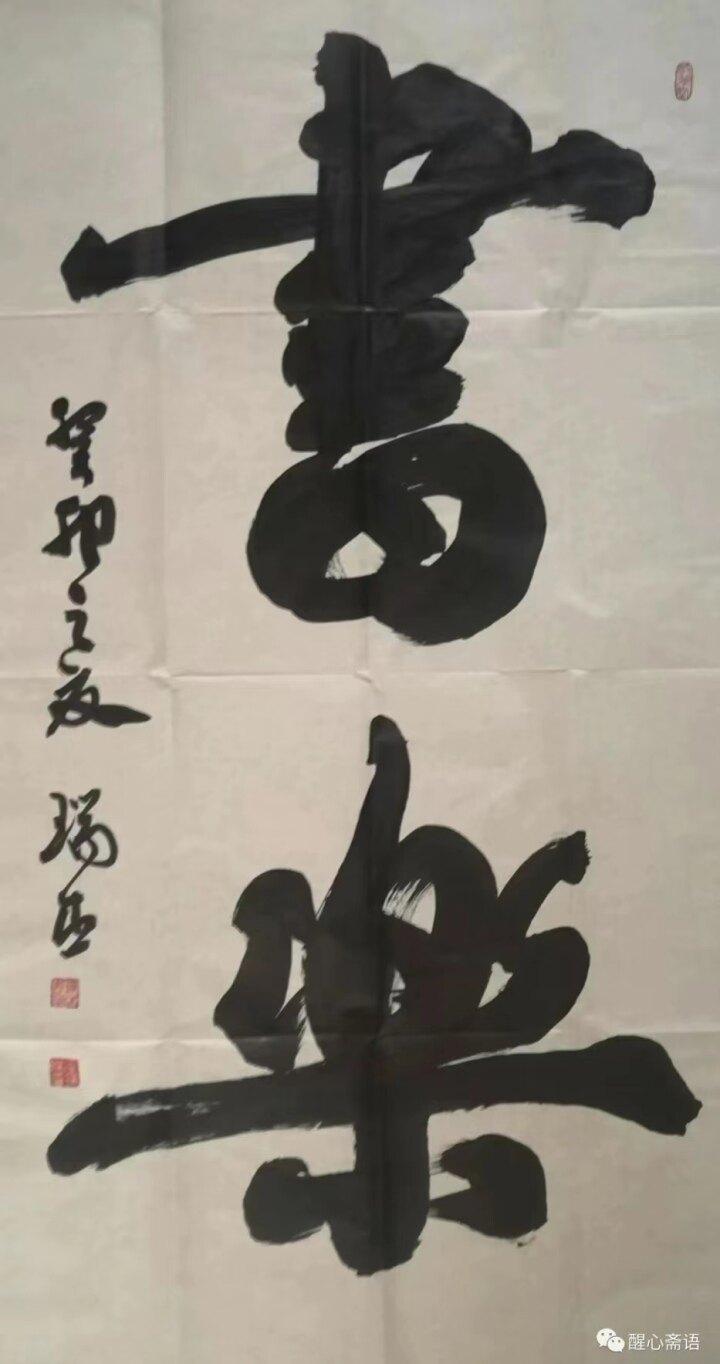 書樂
癸卯之夏 瑞生
醒心斋语